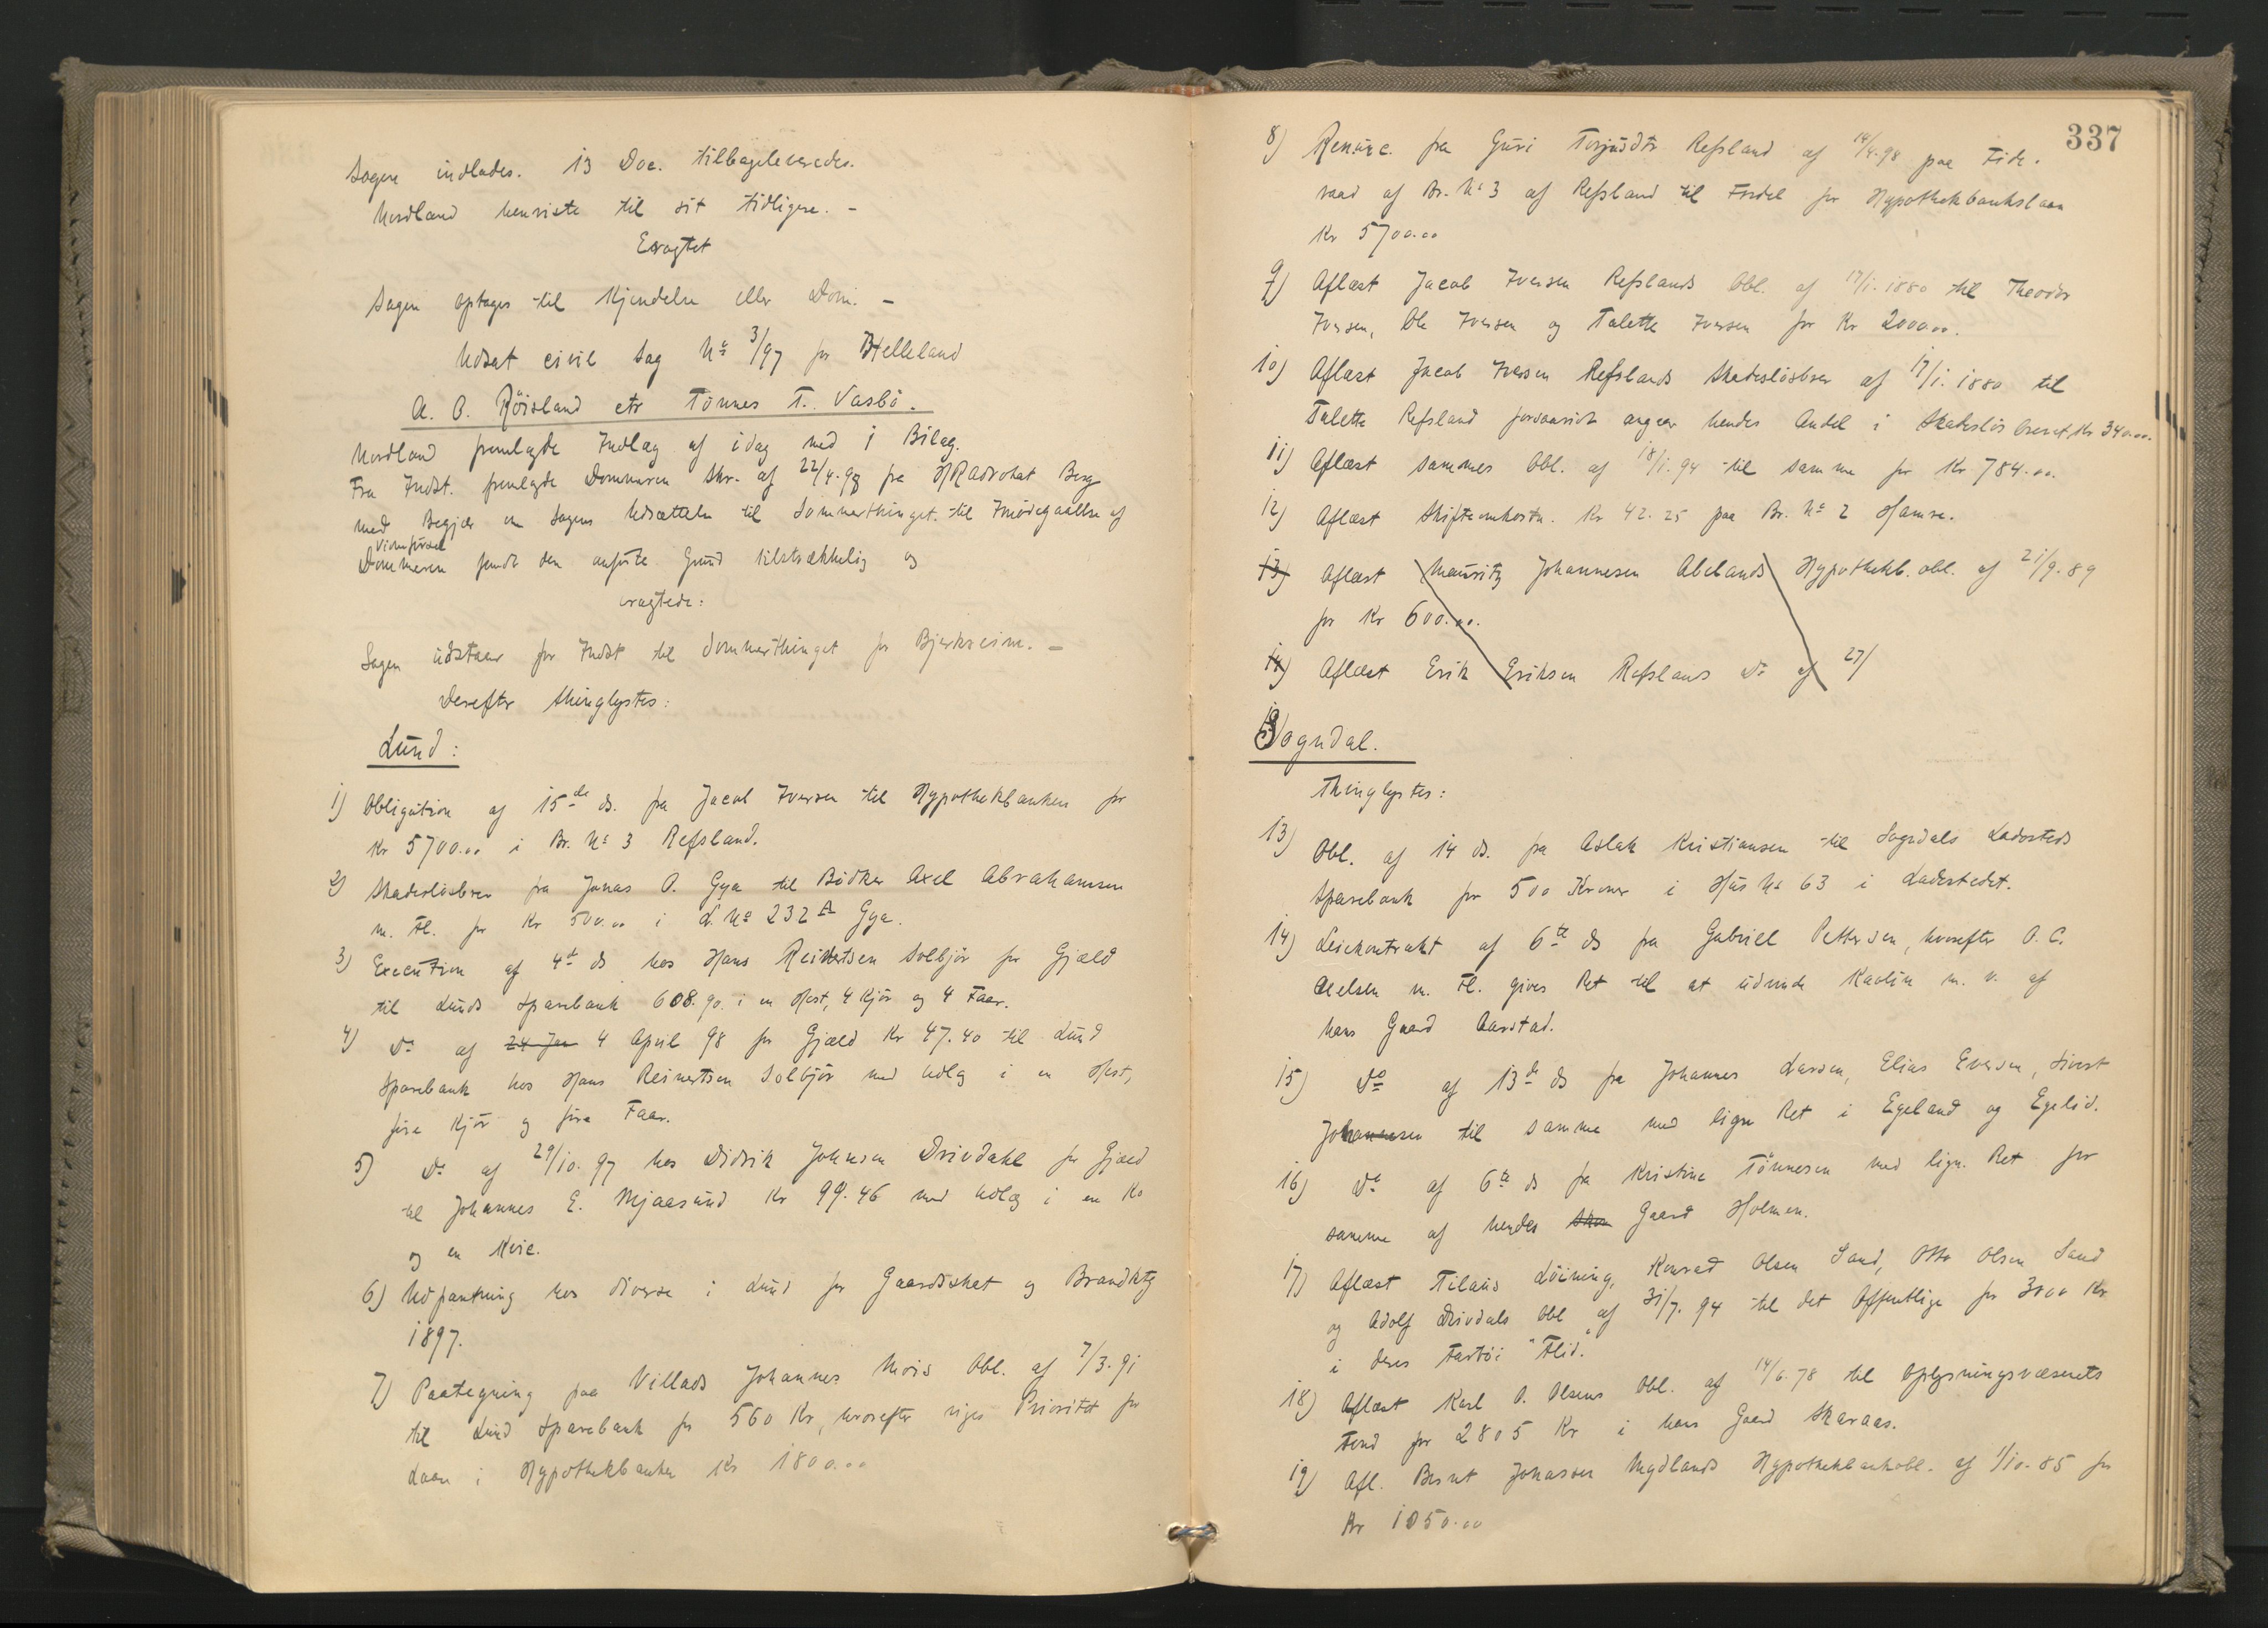 Sagen indlades. 13 Doc. tilbageleveredes.
Nordland henviste til sit tidligere. -
Eragtet
Sagen optages til Kjendelse eller Dom. -
Udsat civil Sag No 3/97 for Helleland
A. O. Röisland ctr Tönnes T. Vasbö.
Nordland fremlagde Indlæg af idag med 1 Bilag.
Fra Indst. fremlagde Dommeren Skr. af 22/4.98 fra HRadvokat Berg
med Begjær om Sagens Udsættelse til Sommerthinget til Imödegaaelse af
Vidneförsel
Dommeren fandt den anförte Grund tilstrækkelig og
eragtede:
Sagen udstaar for Indst til Sommerthinget for Bjerkreim. -
Derefter thinglystes:
Lund:
1) Obligation af 15de ds. fra Jacob Iversen til Hypothekbanken for
Kr 5700.00 i Br. No 3 Refsland.
2) Skadeslösbrev fra Jonas O. Gya til Bödker Axel Abrahamsen
m. Fl. for Kr 500.00 i L. No 232 A Gya.
3) Execution af 4de ds hos Hans Reinertsen Solbjör for Gjæld
til Lunds Sparebank 608.90 i en Hest, 4 Kjör og 4 Faar.
4) Do af 24 Jan 4 April 98 for Gjæld Kr 47.40 til Lund
Sparebank hos Hans Reinertsen Solbjör med Udlæg i en Hest,
fire Kjör og fire Faar.
5) Do af 29/10.97 hos Didrik Johnsen Drivdahl for Gjæld
til Johannes E. Mjaasund Kr 99.46 med Udlæg i en Ko
og en Kvie.
6) Udpantning hos diverse i Lund for Gaardskat og Brandktg
1897.
7) Paategning paa Villads Johannes Mois Obl. af 7/3.91
til Lund Sparebank for 560 Kr, hvorefter viges Prioritet for
Laan i Hypothekbanken Kr 1800.00
337
8) Renunc. fra Guri Terjusdtr Refsland af 14/4.98 paa Föde-
raad af Br. No 3 af Refsland til Fordel for Hypothekbankslaan
Kr 5700.00
9) Aflæst Jacob Iversen Refslands Obl. af 17/1.1880 til Theodor
Iversen, Ole Iversen og Talette Iversen for Kr 2000.00.
10) Aflæst Jacob Iversen Refslands Skadeslösbrev af 17/1.1880 til
Talette Refsland forsaavidt angaar hendes Andel i Skadeslösbrevet, Kr 340.00.
11) Aflæst sammes Obl. af 18/1.94 til samme for Kr 784.00.
12) Aflæst Skifteomkostn. Kr 42.25 paa Br. No 2 Hamre.
13) Aflæst Mauritz Johannesen Abelands Hypothekb. obl. af 21/9.89
for Kr 600.00.
14) Aflæst Erik Eriksen Refslands Do af 27/
Sogndal.
Thinglystes:
13) Obl. af 14 ds. fra Aslak Kristiansen til Sogndals Ladesteds
Sparebank for 500 Kroner i Hus No 63 i Ladestedet.
14) Leiekontrakt af 6te ds fra Gabriel Pettersen, hvorefter O. C.
Axelsen m. Fl. gives Ret til at udvinde Kaolin m. v. af
hans Gaard Aarstad.
15) Do af 13de ds fra Johannes Larsen, Elias Eversen, Sivert
Johannesen til samme med lign Ret i Egeland og Egelid.
16) Do af 6te ds fra Kristine Tönnesen med lign. Ret for
samme af hendes Gaard Holmen.
17) Aflæst Tilaus Löining, Konrad Olsen Sand, Otto Olsen Sand
og Adolf Drivdals Obl af 31/7.94 til det Offentlige for 3000 Kr
i deres Fartöi "Flid."
18) Aflæst Karl O. Olsens Obl. af 14/6.78 til Oplysningsvæsenets
Fond for 2805 Kr i hans Gaard Skaraas.
19) Afl. Bernt Jonassen Mydlands Hypothekbankobl. af 1/10.85 for
Kr 1050.00